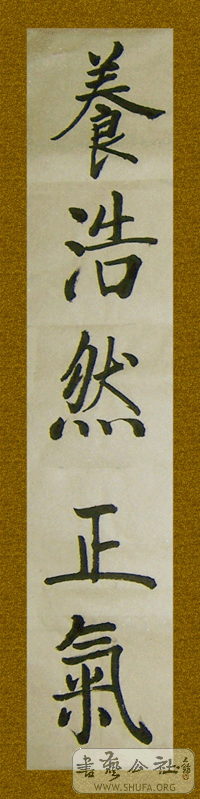 養浩然正氣
書藝公社
WWW.SHUFA.ORG